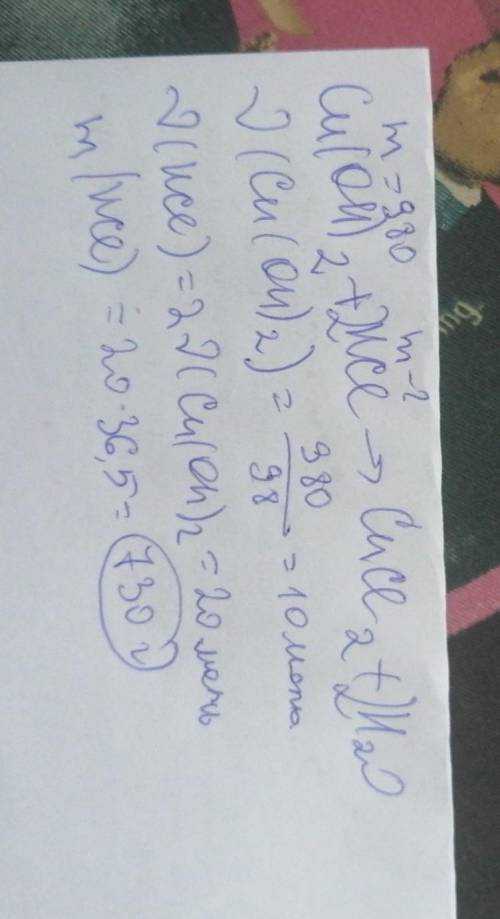 m = 980 m-?
Cu(OH)2 + 2HCl → CuCl2 + 2H2O
ν(Cu(OH)2) = 980/98 = 10 моль
ν(HCl) = 2ν(Cu(OH)2 = 20 моль
m(HCl) = 20·36,5 = 730 г